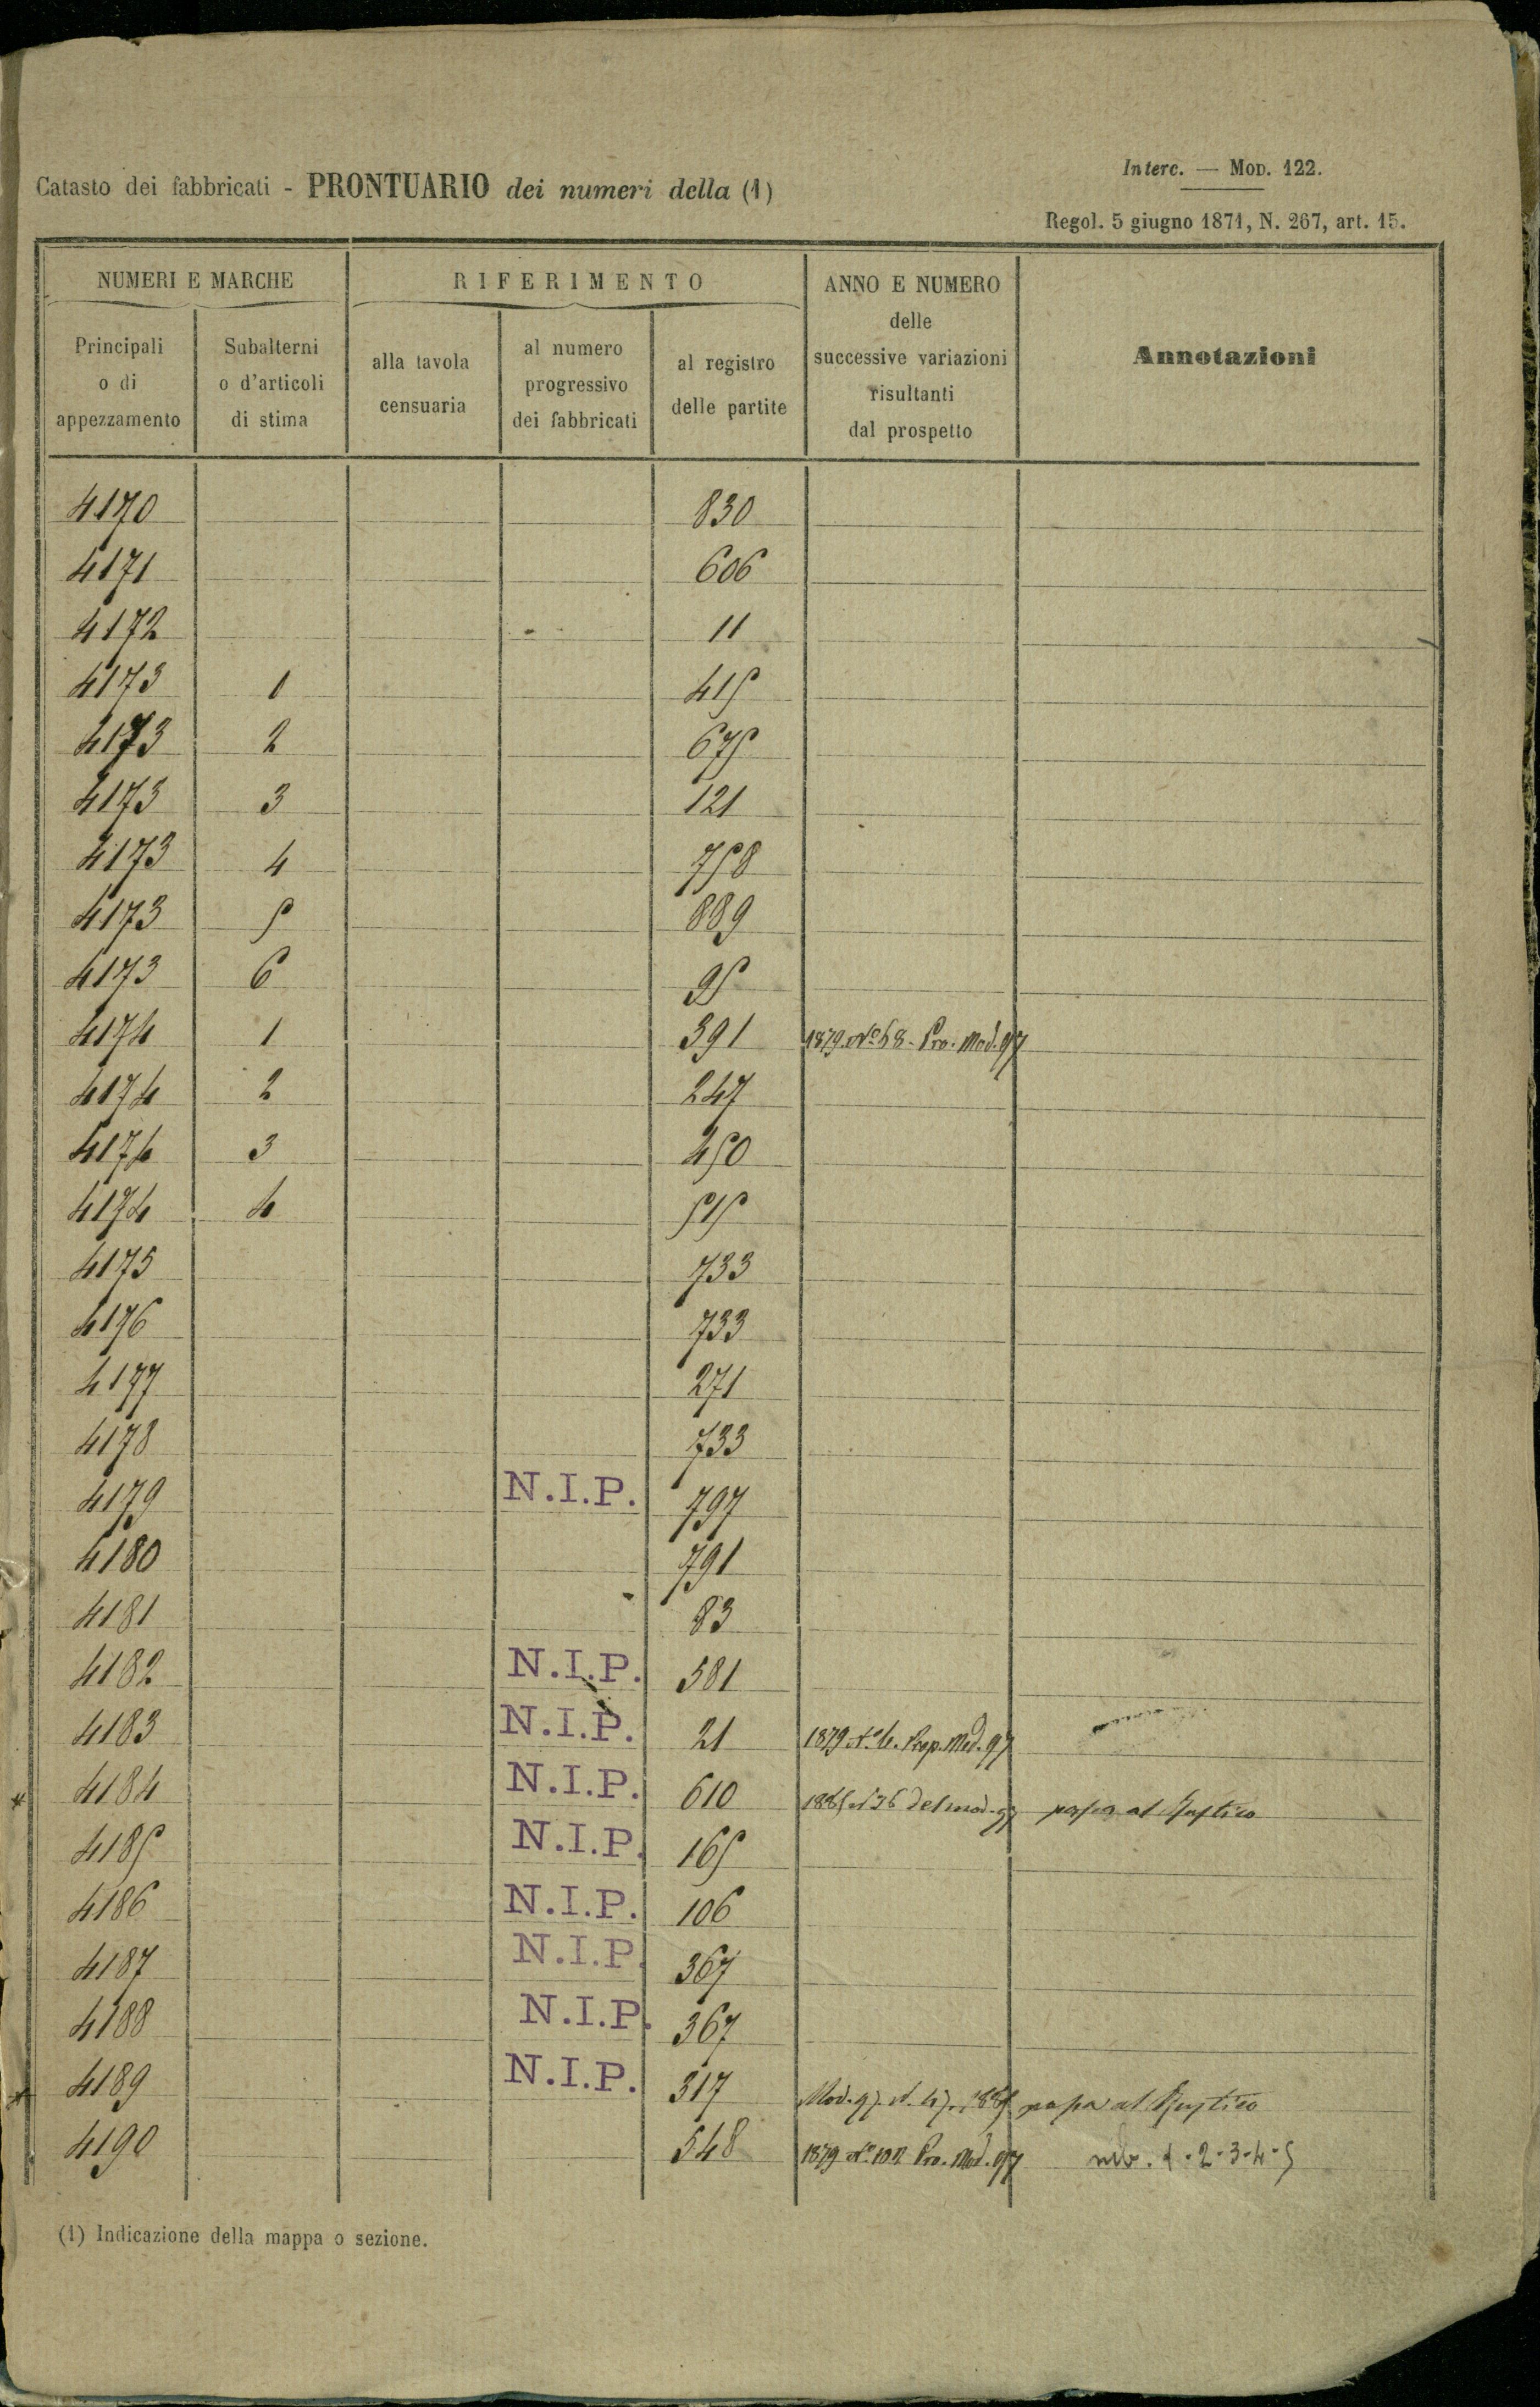 Interc. — Mod. 122.
Catasto dei fabbricati - PRONTUARIO dei numeri della (1)
Regol. 5 giugno 1871, N. 267, art. 15.
NUMERI E MARCHE
RIFERIMENTO
ANNO E NUMERO
delle
successive variazioni
risultanti
dal prospetto
Annotazioni
Principali
o di
appezzamento
Subalterni
o d'articoli
di stima
alla tavola
censuaria
al numero
progressivo
dei fabbricati
al registro
delle partite
4170 830
4171 606
4172 11
4173 1 415
4173 2 675
4173 3 121
4173 4 758
4173 5 889
4173 6 95
4174 1 391 1879 No 48 - Pro. Mod. 97
4174 2 247
4174 3 450
4174 4 515
4175 733
4176 733
4177 271
4178 733
4179 N.I.P. 797
4180 791
4181 83
4182 N.I.P. 581
4183 N.I.P. 21 1879 No 6. Prop. Mod. 97
4184 N.I.P. 610 del mod. 97 passa al Rustico
4185 N.I.P. 165
4186 N.I.P. 106
4187 N.I.P. 367
4188 N.I.P. 367
4189 N.I.P. 317 Mod. 97. N. 47. passa al Rustico
4190 548 1879 No 102 Pro. Mod. 97 1-2-3-4-5
(1) Indicazione della mappa o sezione.